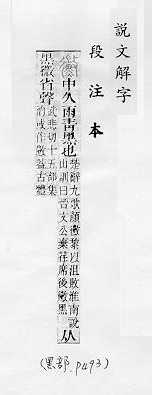 說文解字
段注本
黴中久雨青黑也楚辭九歌顏黴黎以沮敗淮南說山訓曰晉文公棄荏席後黴黑从
黑微省聲武悲切十五部集
(黑部, p493)